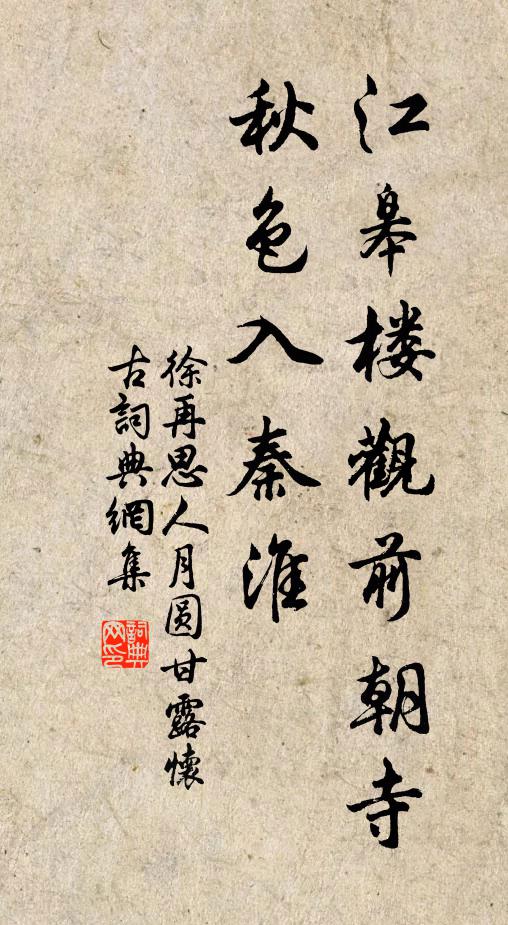 江皋楼觀前朝寺
秋色入秦淮
徐再思人月圆甘露懷
古詞典網集
詞典
网印